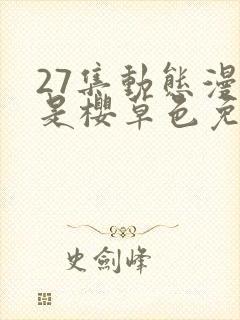 27集動態漫
是櫻草色免
史劍峰